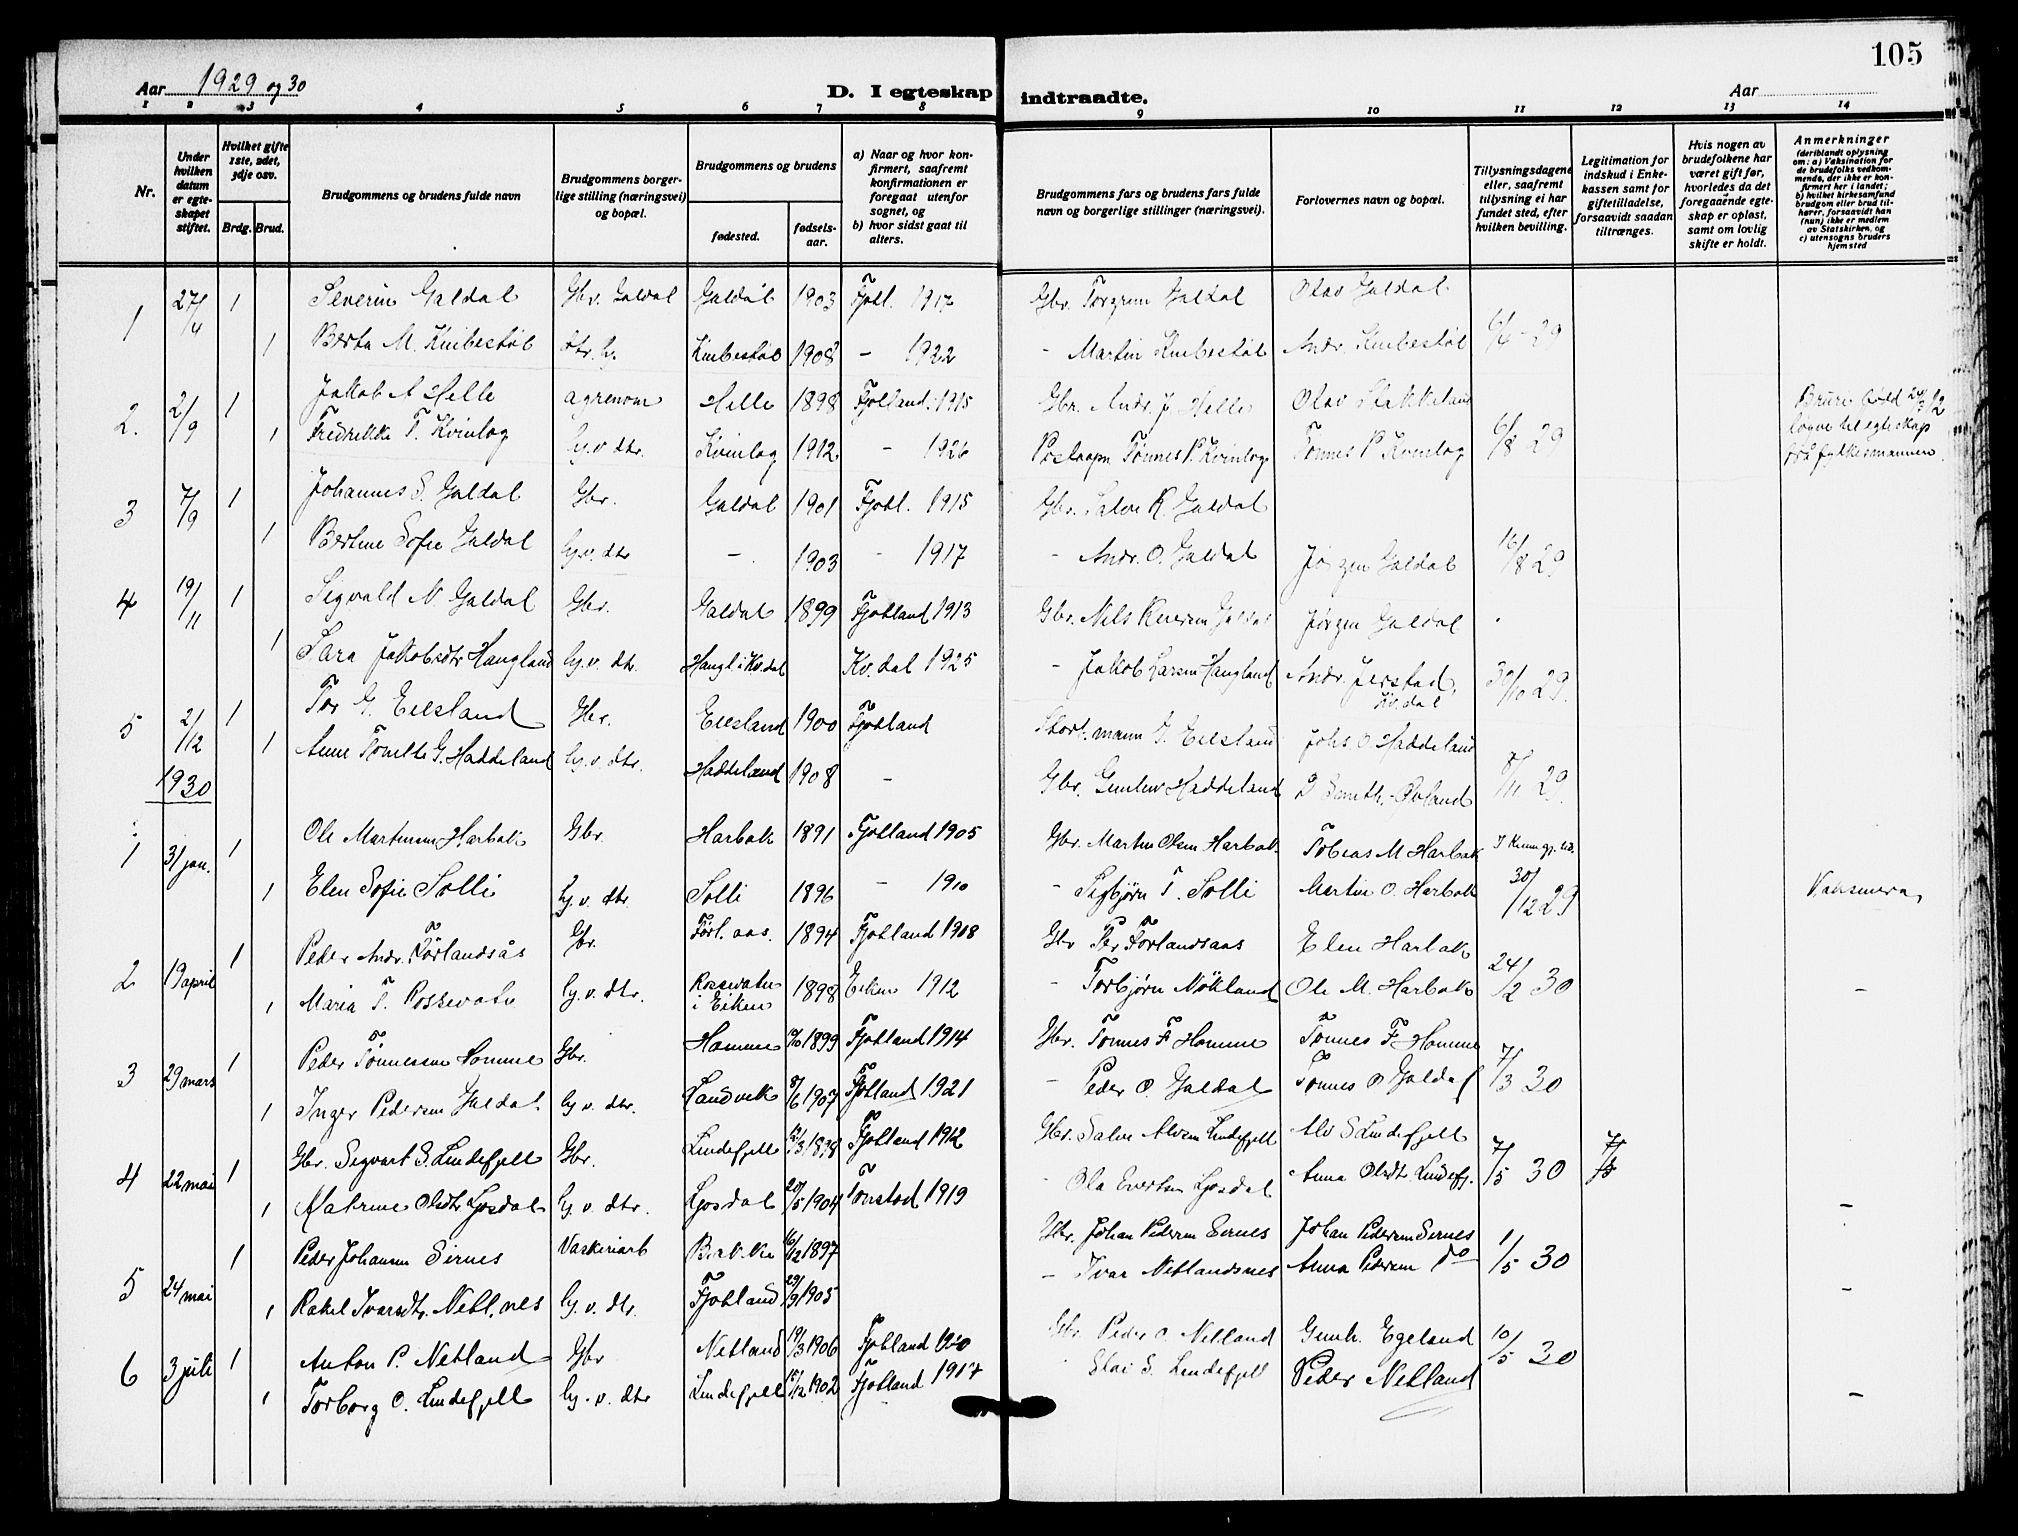 105
Aar 1929 og 30
D. I egteskap indtraadte.
Aar
1 2 3 4 5 6 7 8 9 10 11 12 13 14
Nr.
Under hvilken datum er egteskapet stiftet.
Hvilket gifte 1ste, 2det, 3dje osv.
Brdg. Brud.
Brudgommens og brudens fulde navn
Brudgommens borgerlige stilling (næringsvei) og bopæl.
Brudgommens og brudens
fødested.
fødselsaar.
a) Naar og hvor konfirmert, saafremt konfirmationen er foregaat utenfor sognet, og
b) hvor sidst gaat til alters.
Brudgommens fars og brudens fars fulde navn og borgerlige stillinger (næringsvei).
Forlovernes navn og bopæl.
Tillysningsdagene eller, saafremt tillysning ei har fundet sted, efter hvilken bevilling.
Legitimation for indskud i Enkekassen samt for giftetilladelse, forsaavidt saadan tiltrænges.
Hvis nogen av brudefolkene har været gift før, hvorledes da det foregaaende egteskap er opløst, samt om lovlig skifte er holdt.
Anmerkninger
(deriblandt oplysning om: a) Vaksination for de brudefolks vedkommende, der ikke er konfirmert her i landet; b) hvilket kirkesamfund brudgom eller brud tilhører, forsaavidt han (hun) ikke er medlem av Statskirken, og c) utensogns bruders hjemsted
1 27/4 1 Severin Galdal Gbr. Galdal Galdal 1903 Fjotl. 1917 Gbr. Torgrim Galdal Olav Galdal
1 Berta M. Knibestøl dtr. hj. Knibestøl 1908 - 1922 - Martin Knibestøl Andr. Knibestøl 6/4 - 29
2. 2/9 1 Jakob A Helle agronom Helle 1898 Fjotland. 1915 Gbr. Andr. J Helle Olav Stakkeland
1 Fredrikke T. Kvinlog hj. v dtr. Kvinlog 1912 - 1926 Postaapn Tønnes P. Kvinlog Tønnes P Kvinlog 6/8 29
løyve til egteskap frå fylkesmannen.
3 7/9 1 Johannes S. Galdal Gbr. Galdal 1901 Fjotl. 1915 Gbr. Salve K. Galdal
1 Bertine Sofie Galdal hj. v. dtr - 1903 - 1917 - Andr. O. Galdal Jørgen Galdal 16/8 29
4 19/11 1 Sigvald N Galdal Gbr. Galdal 1899 Fjotland 1913 Gbr. Nils Galdal Jørgen Galdal
1 Sara Jakobsdtr Haugland hj. v. dtr. Haugl i Kv.dal Kv. dal 1925 - Jakob Larsen Haugland Andr. Jerstad, Kv. dal 30/10 29.
5 2/12 1 Tor G. Eiesland Gbr. Eiesland 1900 Fjotland Stort. mann G. Eiesland Johs O. Haddeland
1 Anne Tomelte G. Haddeland hj. v. dtr. Haddeland 1908 - Gbr. Gunleiv Haddeland Smith-Øvland 8/11 29.
1930
1 31 jan. 1 Ole Martinsen Harbak Gbr Harbak 1891 Fjotland 1905 Gbr. Martin Olsen Harbak. Tobias M Harbak
1 Elen Sofie Solli hj. v. dtr. Solli 1896 - 1910 - Sigbjørn T. Solli Martin O. Harbak 30/12 29
2 19 april 1 Peder Andr. Førlandsås Gbr. Førl. aas. 1894 Fjotland 1908 Gbr Per Førlandsaas Elen Harbak
1 Maria T. Rossevatn hj. v. dtr. Rossevatn i Eiken 1898 Eiken 1912 - Torbjørn Nökland Ole M. Harbak 24/2 30 -
3 29 mars 1 Peder Tønnesen Homme Gbr. Homme 1899 Fjotland 1914 Gbr. Tønnes F Homme Tønnes F Homme
1 Inger Pedersen Galdal. hj v. dtr. Landvik 8/6 1907 Fjotland 1921 - Peder O. Galdal Tønnes O Galdal 7/3 30
4 22 mai 1 Gbr. Sigvart S. Lindefjell Gbr. Lindefjell 12/3 1898 Fjotland 1912 Gbr. Salve Alvsen Lindefjell Alv S Lindefjell
1 Katrine Olsdtr Ljosdal hj. v. dtr. Ljosdal 20/5 1904 Tonstad 1919 - Ola Evertsen Ljosdal Anna Olsdt Lindefj. 7/5 30 -
5 24 mai 1 Peder Johansen Sirnes Vaskeriarb 16/12 1897 Gbr. Johan Pedersen Sirnes Johan Pedersen Sirnes
1 Rakel Ivarsdtr. Netl. nes hj. v. dtr. Fjotland 29/9 1905 - Ivar Netlandsnes Anna Pedersen Do 1/5 30 -
6 3 juli 1 Anton P. Netland Gbr Netland 19/3 1906 Fjotland 1920 Gbr. Peder O. Netland Gunh. Egeland
1 Torborg O. Lindefjell hj. v. dtr Lindefjell 15/12 1902 Fjotland 1917 S. Lindefjell Peder Netland 10/5 30 -